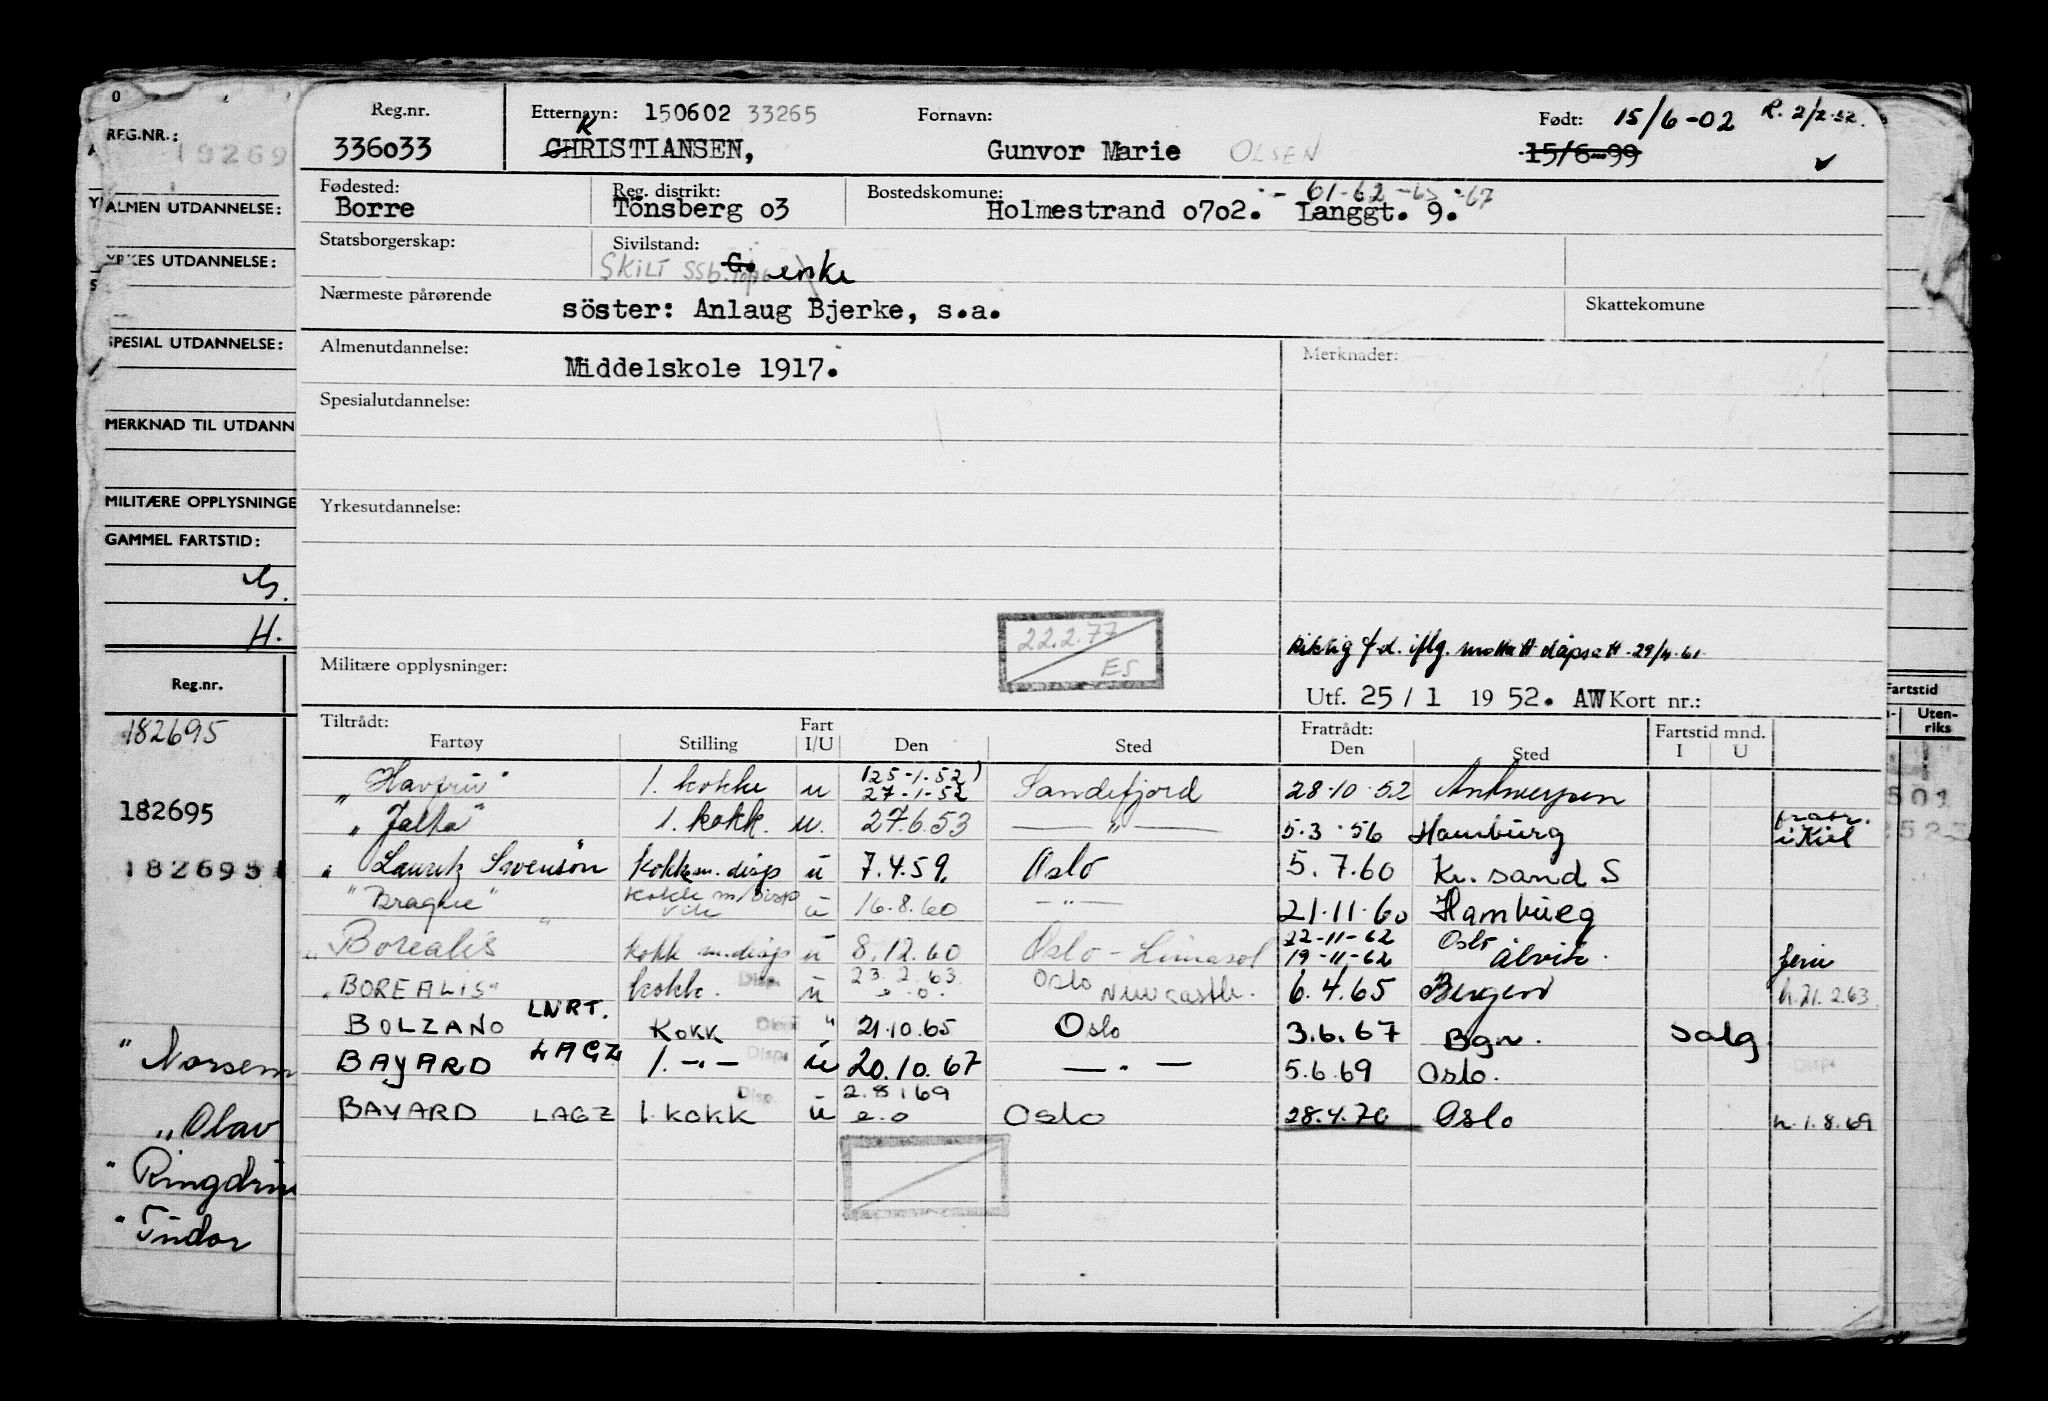 Reg.nr. Etternavn: 150602 33265 Fornavn: Født: 15/6-02 R. 2/2-52.
336033 CHRISTIANSEN, K Gunvor Marie OLSEN 15/6-99
Fødested: Reg. distrikt: Bostedskommune: - 61-62-65-67
Borre Tönsberg o3 Holmestrand o7o2. Langgt. 9.
Statsborgerskap: Sivilstand:
SKILT SSb. G. enke
Nærmeste pårørende söster: Anlaug Bjerke, s.a. Skattekomune
Almenutdannelse: Middelskole 1917. Merknader:
Spesialutdannelse:
Yrkesutdannelse:
22.2.77
ES
Riktig f.d. iflg. mottatt dåpsatt. 29/4-61
Militære opplysninger:
Utf. 25/1 1952. AW Kort nr.:
Tiltrådt: Fart Fratrådt: Fartstid mnd.
Fartøy Stilling I/U Den Sted Den Sted I U
"Havfru" 1. kokke u (25-1-52) 27-1-52 Sandefjord 28-10-52 Antwerpen
"Jalta" 1. kokk. u. 27.6.53 — " — 5.3.56 Hamburg fratr. i Kiel
" Lauritz Svenson kokk m. disp u 7.4.59. Oslo 5.7.60 Kr. sand S
"Braghe" kokk m/Disp u 16.8.60 — " — 21.11.60 Hamburg
"Borealis" kokk m. disp u 8.12.60 Oslo - Limasol 22-11-62 19-11-62 Oslo Ålvik. ferie
"BOREALIS" kokk. Disp. u 23.2.63. Oslo Newcastle. 6.4.65 Bergen h. 21.2.63
BOLZANO LNRT. KOKK " 21.10.65 Oslo 3.6.67 Bgn. Salg
BAYARD LAGZ 1. -"- Disp. u 20.10.67 — " — 5.6.69 Oslo.
BAYARD LAGZ 1. KOKK Disp. u 2.8.69 e.o Oslo 28.4.70 Oslo h. 1.8.69
REG.NR.:
18269
ALMEN UTDANNELSE:
YRKES UTDANNELSE:
SPESIAL UTDANNELSE:
MERKNAD TIL UTDANN
MILITÆRE OPPLYSNINGE
GAMMEL FARTSTID:
H.
Reg.nr.
182695
182695
182695
" Norsem
"Olav
" Ringdri
" Tudor
Fartstid
Uten-
riks